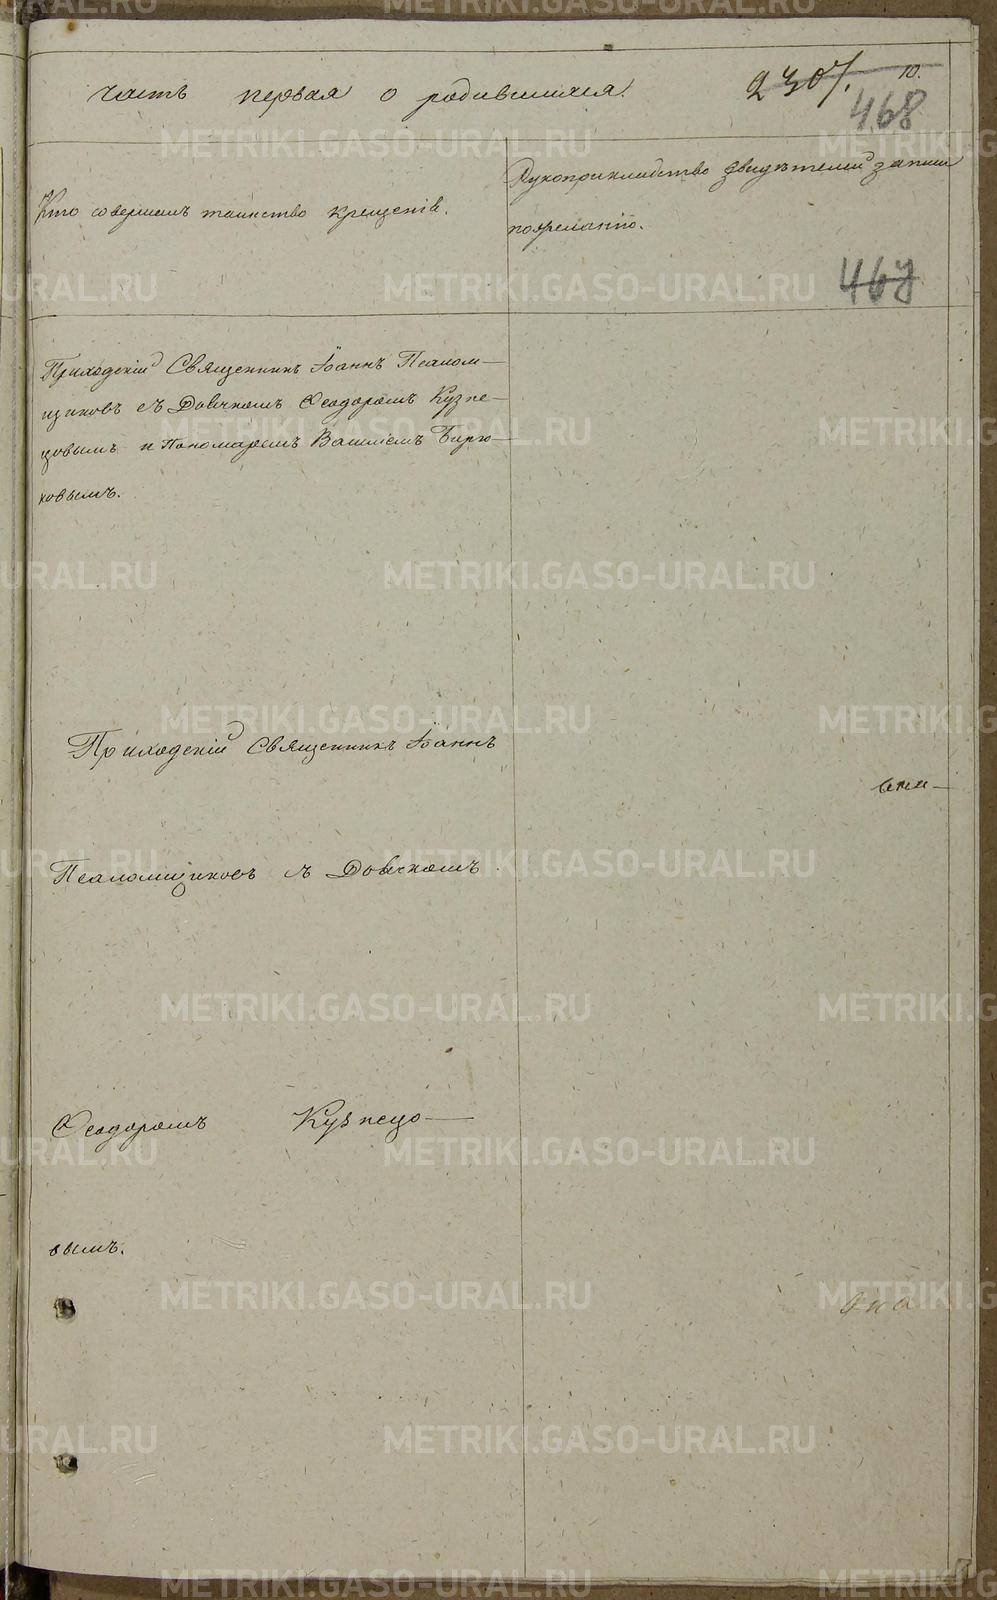 часть первая о родившихся.
2307. 10.
468
Кто совершалъ таинство крещенія.
Рукоприкладство свидѣтелей записи
по желанію.
467
Приходскій Священникъ Іоаннъ Псалом—
щиковъ съ Дьячкомъ Ѳеодоромъ Кузне—
цовымъ и Пономаремъ Василіемъ Бирю—
ковымъ.
Приходскій Священникъ Іоаннъ
Псаломщиковъ съ Дьячкомъ
Ѳеодоромъ Кузнецо—
вымъ.
METRIKI.GASO-URAL.RU